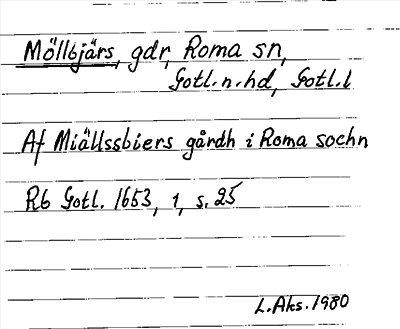 Möllbjärs, gdr, Roma sn,
Gotl.n.hd, Gotl.l
Af Miällssbiers gårdh i Roma sochn
Rb Gotl. 1653, 1, s. 25
L.Aks. 1980